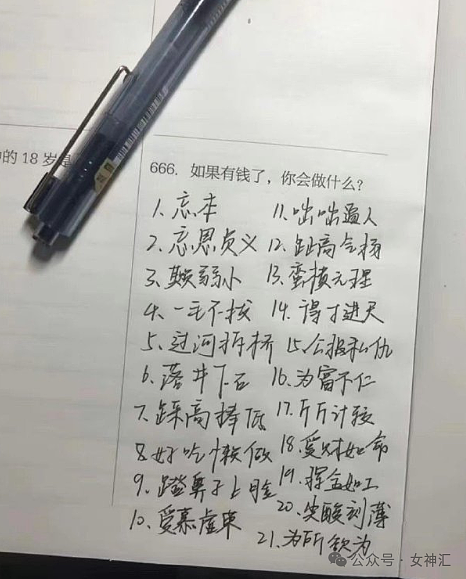 的 18 岁是
666. 如果有钱了，你会做什么？
1. 忘本
2. 忘恩负义
3. 欺弱小
4. 一毛不拔
5. 过河拆桥
6. 落井下石
7. 踩高捧低
8. 好吃懒做
9. 蹬鼻子上脸
10. 爱慕虚荣
11. 咄咄逼人
12. 趾高气扬
13. 蛮横无理
14. 得寸进尺
15. 公报私仇
16. 为富不仁
17. 斤斤计较
18. 爱财如命
19. 挥金如土
20. 尖酸刻薄
21. 为所欲为
公众号 · 女神汇